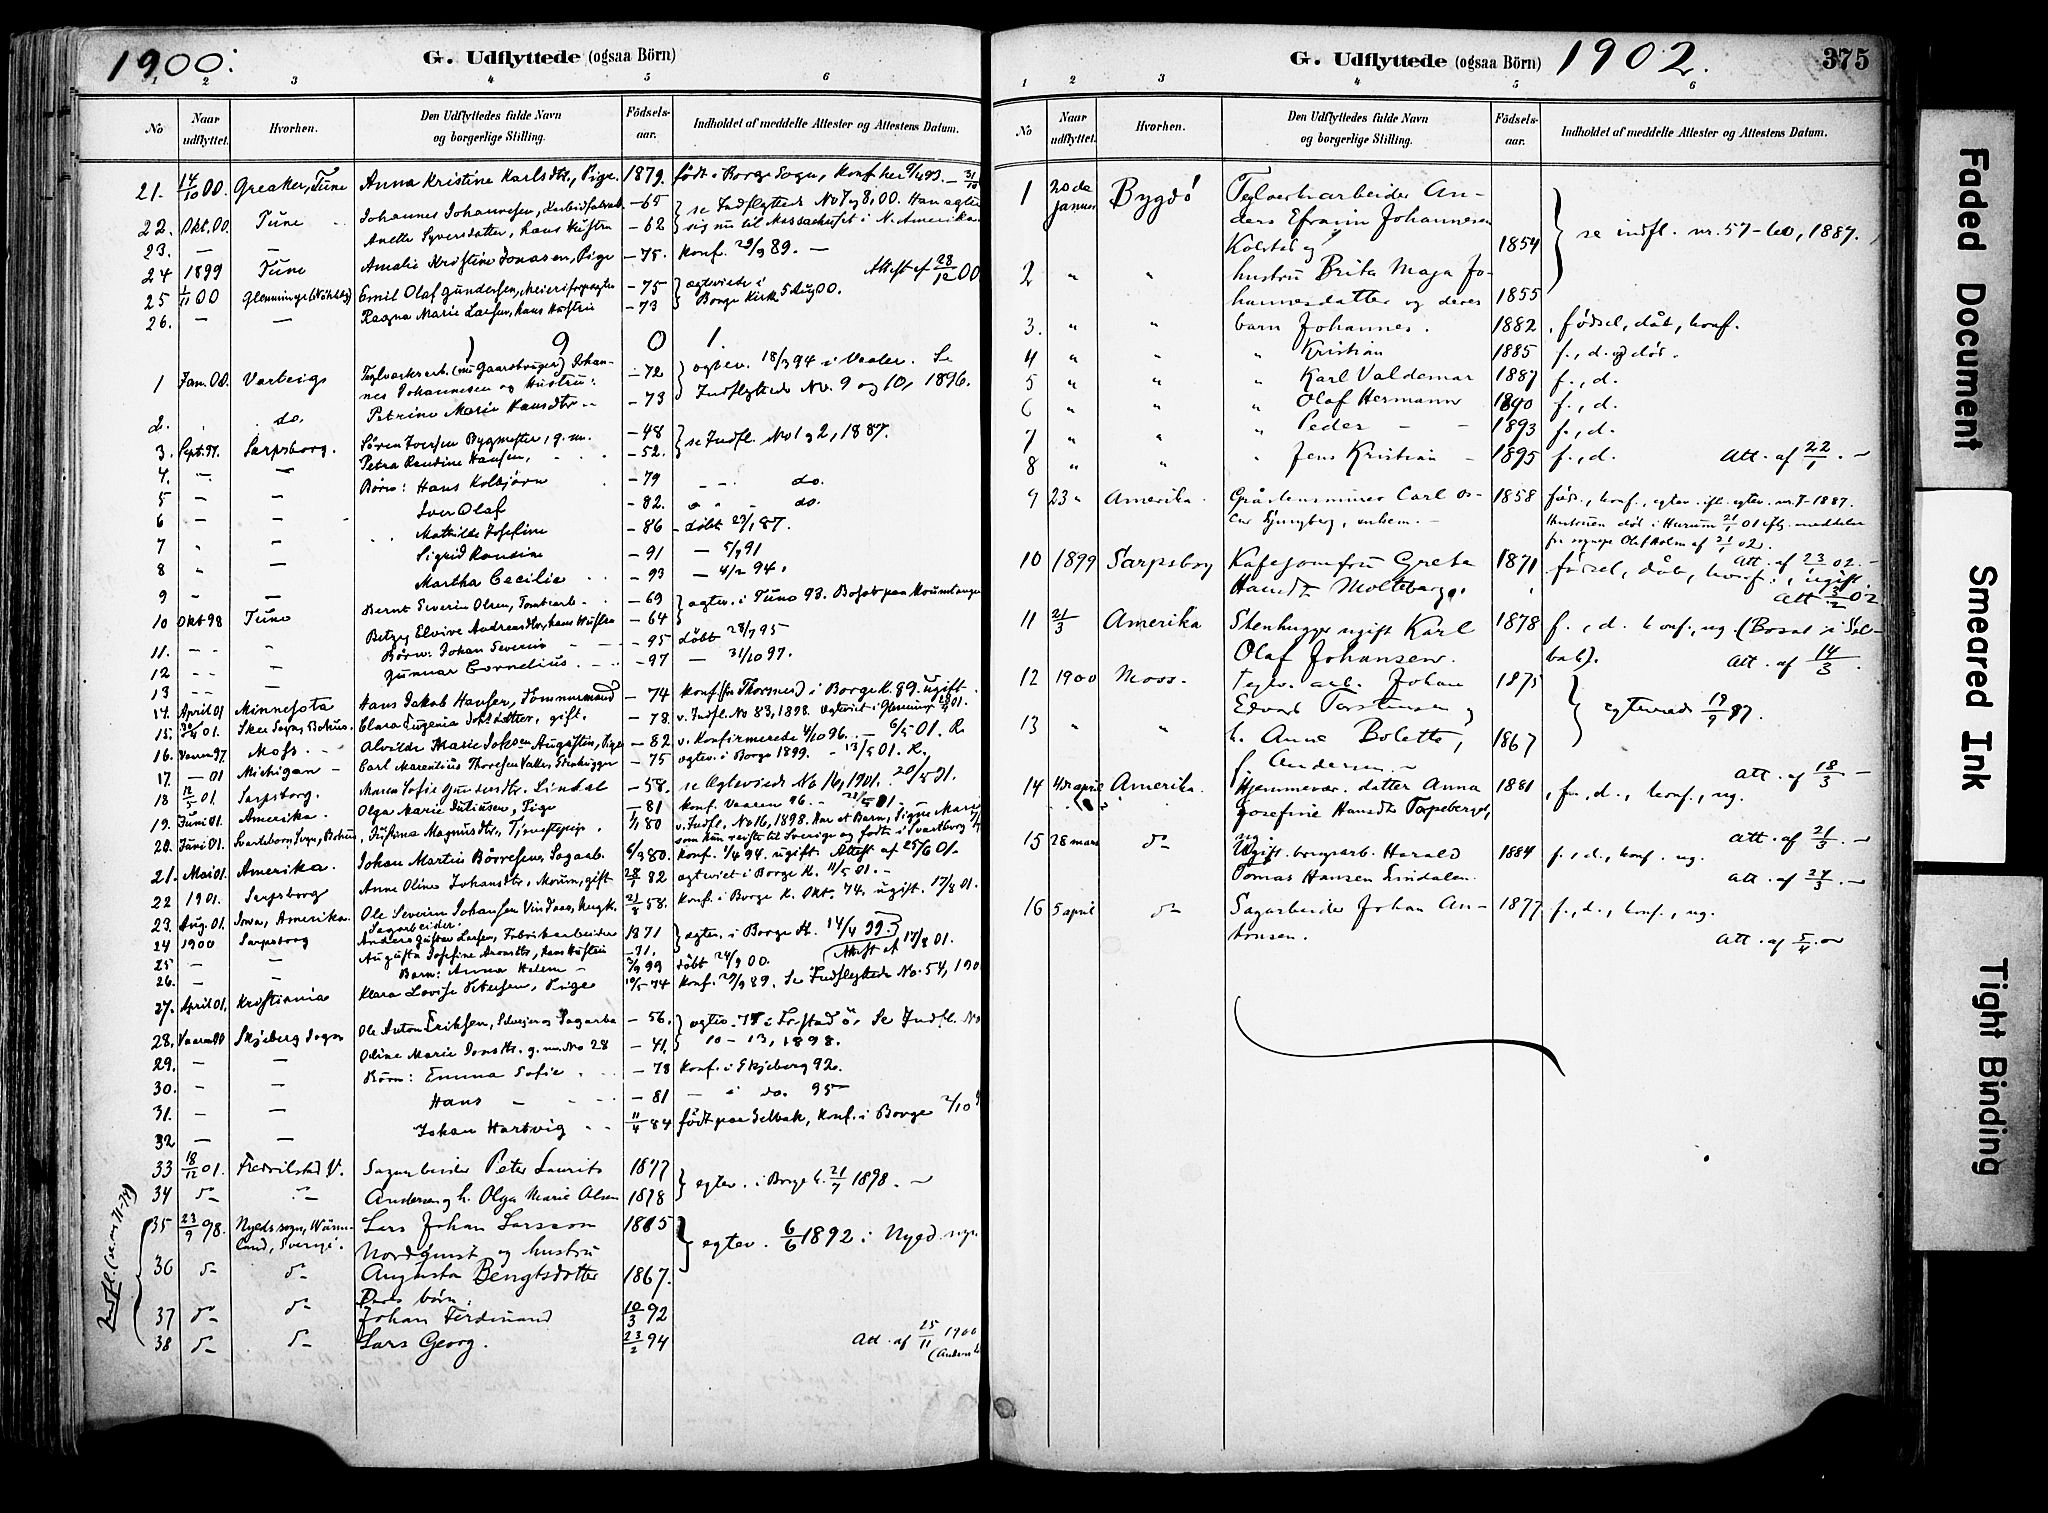 1900.
G. Udflyttede (ogsaa Börn)
1 2 3 4 5 6
No
Naar udflyttet.
Hvorhen.
Den Udflyttedes fulde Navn og borgerlige Stilling.
Födsels-aar.
Indholdet af meddelte Attester og Attestens Datum.
21. 14/10 00. Greaker, Tune Anna Kristine Karlsdtr., Pige. 1879. født i Borge Sogn, Konf. her
22. Okt. 00. Tune Johannes Johannesen, -65 se Indflyttede No 7 og 8, 00. Han agter
23. — — Anette Syversdatter, hans Hustru -62 sig nu til Massachuset i N. Amerika
24 1899 Tune Amalie Kristine Jonasen, Pige -75. Konf. 29/9 89. —
25 1/11 00 Glemminge Emil Olaf Gundersen, -75 ægteviede i Attest af 28/12 00
26. — — Ragna Marie Larsen, hans Hustru -73 Borge Kirke 5 Aug 00.
1 9 0 1.
1 Jan. 00. Varteigs Teglværksarb. (nu Gaardbruger) Johan-
nes Johannesen og Hustru: -72 ægtev. 18/3 94 i Vaaler. Se
2. do. Petrine Marie Hansdtr -73 Indflyttede No. 9 og 10, 1896.
3. Sept. 97. Sarpsborg. Søren Iversen Bygmester, g. m. -48 se Indfl. No 1 og 2, 1887.
4. — — Petra Randine Hansen, -52.
5 — — Børn: Hans Kolbjørn -79 do.
6 — — Iver Olaf -82. do.
7 — — Mathilde Josefine -86 døbt 23/1 87.
8 — — Sigrid Randine -91 — 5/7 91
9 — — Martha Cecilie -93 — 4/2 94.
10 Okt 98 Tune Bernt Severin Olsen, Tomtearb. -69 ægtev. i Tune 93.
11. — — Betzy Elvire Andreasdtr, hans Hustru -64
12 — — Børn: Johan Severin -95 døbt 28/7 95
13 — — Gunnar Cornelius -97 — 31/10 97.
14. April 01 Minnesota Hans Jakob Hansen, Tømmermand -74 Konf. (fra Thorsnes) i Borge K. 89. ugift
15. 30/4 01. Clara Eugenia gift. -78. v. Indfl. No 83, 1898.
16. Vaaren 97. Moss Alvilde Marie Augustin, Pige -82 v. Konfirmerede 4/10 96. — 6/5 01. R.
17. — 01 Michigan Carl Marentius Thoresen Stenhugger -75 ægtev. i Borge 1899. — 13/5 01. R.
18 18/5 01. Sarpsborg. Maren Sofie Gundersdtr. Lindal -58. se Ægteviede No 14, 1901. 20/5 01.
19. Juni 01. Amerika. Olga Marie Juliusen, Pige -81 Konf. Vaaren 96. — 21/5 01.
20. Juni 01. Justina Magnusdtr, Tjenestepige. 1/1 80 v. Indfl. No 16, 1898. Har et Barn, Signe Marie
som hun reiste til Sverige og fødte i Svarteborg
21. Mai 01. Amerika. Johan Martin Børresen, Sagarb. 6/3 80. Konf. 1/4 94. ugift. Attest af 25/6 01.
22 1901. Sarpsborg Anne Oline Johansdtr, Moum, gift 28/1 82 ægteviet i Borge K. 11/5 01.
23. Aug. 01. Iowa, Amerika. Ole Severin Johansen 21/8 58. Konf. i Borge K. Okt. 74, ugift. 17/8 01.
Sagarbeider.
24 1900 Sarpsborg Anders Gustav Larsen, Fabrikarbeider 1871 ægtev. i Borge K. 14/4 99.
25 — — Augusta Josefine Aronsdtr, hans Hustru -71. Attest af 17/8 01.
26. — Barn: Anna Helene 3/9 99 døbt 24/9 00.
27. April 01. Kristiania Klara Lovise Petersen, Pige 10/5 74 Konf. 29/9 89. Se Indflyttede No. 54, 190
28. Vaaren 00 Skjeberg Sogn Ole Anton Eriksen, Selveier og Sagarb. -56. ægtev. Se Indfl. No
29. — — Oline Marie Jonsdtr. g. m. No 28 -41. 10-13, 1898.
30. — — Børn: Emma Sofie -78 Konf. i Skjeberg 92.
31. — — Hans -81 — i do. 95
32 — — Johan Hartvig 11/4 84 født paa Selbak, Konf. i Borge 2/10
33 18/12 01. Fredrikstad V. Sagarbeider Peter Laurits 1877 egtev. i Borge k. 21/7 1898.
34 d° Andersen og h. Olga Marie Olsen 1878
35 23/9 98. Nyeds sogn, Värm- Lars Johan Larsson 1865 egtev. 6/6 1892 i Nyed sogn
land, Sverige. Nordquist og hustru
36 d° d° Augusta Bengtsdotter 1867.
Deres børn:
37 d° d° Johan Ferdinand 10/3 92
38 d° d° Lars Georg. 23/2 94 Att. af 25/11 1900
Indfl. (se nr 71-74)
G. Udflyttede (ogsaa Börn) 1902. 375
1 2 3 4 5 6
No
Naar udflyttet.
Hvorhen.
Den Udflyttedes fulde Navn og borgerlige Stilling.
Födsels-aar.
Indholdet af meddelte Attester og Attestens Datum.
1 20de Bygdö Teglverksarbeider An-
januar ders Efraim Johannesen
Kolstad og 1854 se indfl. nr. 57-60, 1887.
2 " " hustru Brita Maja Jo-
hannesdatter og deres 1855
3. " " barn Johannes. 1882 fødsel, dåb, konf.
4 " " " Kristian 1885 f., d. og død.
5 " " " Karl Valdemar 1887 f., d.
6 " " " Olaf Hermann 1890 f., d.
7 " " " Peder 1893 f., d.
8 " " " Jens Kristian 1895 f., d. Att. af 22/1
9 23 " Amerika. Gråstensminer Carl Os- 1858 fød., konf., egtev. ifl. egtev. nr. 7-1887.
car Ljungberg, enkem. Hustruen død i Hurum 21/1 01 eflg. meddelelse
fra sognepr. Olaf Holm af 21/1 02.
Att. af 23/1 02.
10 1899 Sarpsborg Kafejomfru Greta 1871 fødsel, dåb, konf., ugift.
Hansdtr. Molteberg. Att 3/2 02
11 21/3 Amerika Stenhugger ugift Karl 1878 f., d. konf., ug. (Bosat i Sel-
Olaf Johansen. bak). Att. af 14/3.
12 1900 Moss. teglv. arb. Johan 1875
Edvard Torstensen og egteviede 19/9 97.
13 " " h. Anne Bolette, 1867
f. Andersen. Att. af 18/3
14 4de april Amerika. Hjemmevær. datter Anna 1881 f., d., konf., ug.
Josefine Hansdtr. Torpeberget,
ug. Att. af 21/3
15 28 mars d° Ugift bergsarb. Harald 1884 f., d., konf., ug.
Tomas Hansen Lindalen. Att. af 24/3
16 5 april d° Sagarbeider Johan An- 1877 f., d., konf., ug.
tonsen. Att. af 5/4
Faded Document
Smeared Ink
Tight Binding